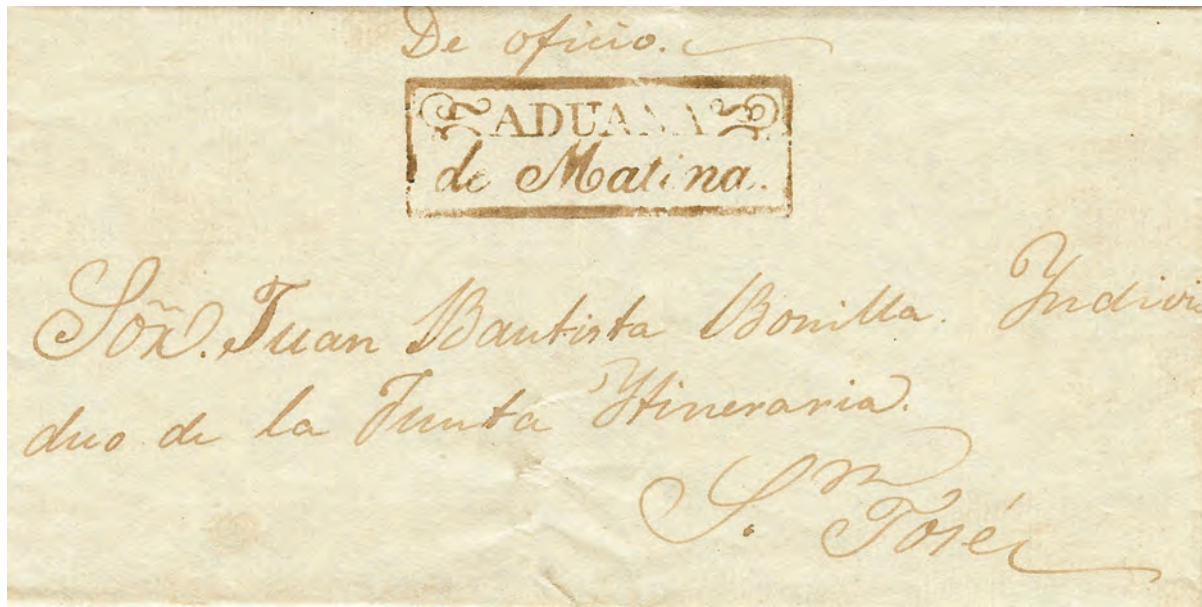 De oficio.
ADUANA
de Matina.
Señr. Juan Bautista Bonilla. Yndivi
duo de la Junta Ytineraria.
S.n José